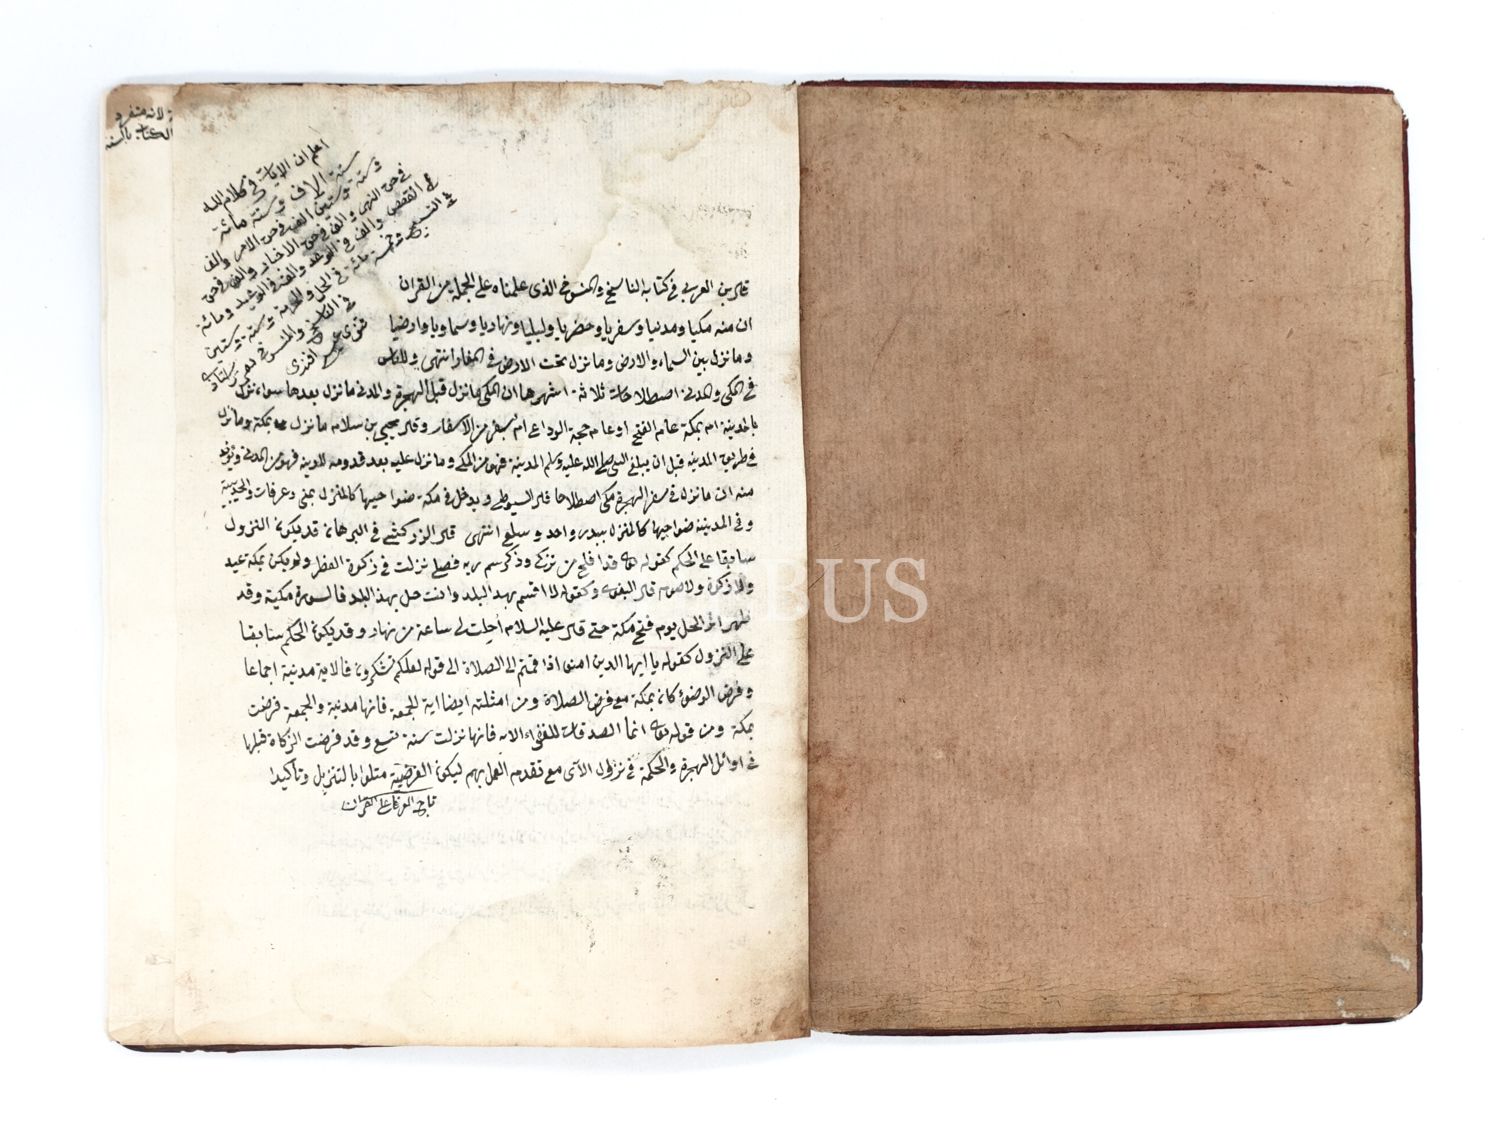 لانه منفرد
الكتاب بالسنة
اعلم ان الايات في كلام الله
ستة الاف وستة مائة
وستة وستين الف في حق الامر والف
في حق النهي والف في حق الاخبار والف في حق
القصص والف في الوعد والف في الوعيد ومائة
في التسبيح وخمسة مائة في الحل والحرمة وستة وستين
في الناسخ والمنسوخ
فتوى على افندى
قال بن العربي في كتابه الناسخ والمنسوخ الذى علمناه على الجملة من القران
ان منه مكيا ومدنيا وسفريا وحضريا وليليا ونهاريا وسماويا وارضيا
وما نزل بين السماء والارض وما نزل تحت الارض في الغار انتهى وللناس
في المكي والمدني اصطلاحات ثلاثة اشهرها ان المكي ما نزل قبل الهجرة والمدني ما نزل بعدها سواء نزل
بالمدينة ام بمكة عام الفتح او عام حجة الوداع ام بسفر من الاسفار وقال يحيى بن سلام ما نزل بمكة وما نزل
في طريق المدينة قبل ان يبلغ النبي صلى الله عليه وسلم المدينة فهو من المكي وما نزل عليه بعد قدومه المدينة فهو من المدني ويؤخذ
منه ان ما نزل في سفر الهجرة مكي اصطلاحا قال السيوطي ويدخل في مكة ضواحيها كالمنزل بمنى وعرفات والحديبية
وفي المدينة ضواحيها كالمنزل ببدر واحد وسلع انتهى قال الزركشي في البرهان قد يكون النزول
سابقا على الحكم كقوله تعالى قد افلح من تزكى وذكر اسم ربه فصلى نزلت في زكوة الفطر ولم يكن بمكة عيد
ولا زكوة ولا صوم قال البغوي وكقوله لا اقسم بهذا البلد وانت حل بهذا البلد فالسورة مكية وقد
ظهر اثر الحل يوم فتح مكة حتى قال عليه السلام احلت لي ساعة من نهار وقد يكون الحكم سابقا
على النزول كقوله يا ايها الذين امنوا اذا قمتم الى الصلاة الى قوله لعلكم تشكرون فالاية مدنية اجماعا
وفرض الوضوء كان بمكة مع فرض الصلاة ومن امثلته ايضا اية الجمعة فانها مدنية والجمعة فرضت
بمكة ومن قوله تعالى انما الصدقات للفقراء الاية فانها نزلت سنة تسع وقد فرضت الزكاة قبلها
في اوائل الهجرة والحكمة في نزول الآتى مع تقدم العمل بهم ليكون الفرضية متلوا بالتنزيل وتأكيدا
BUS